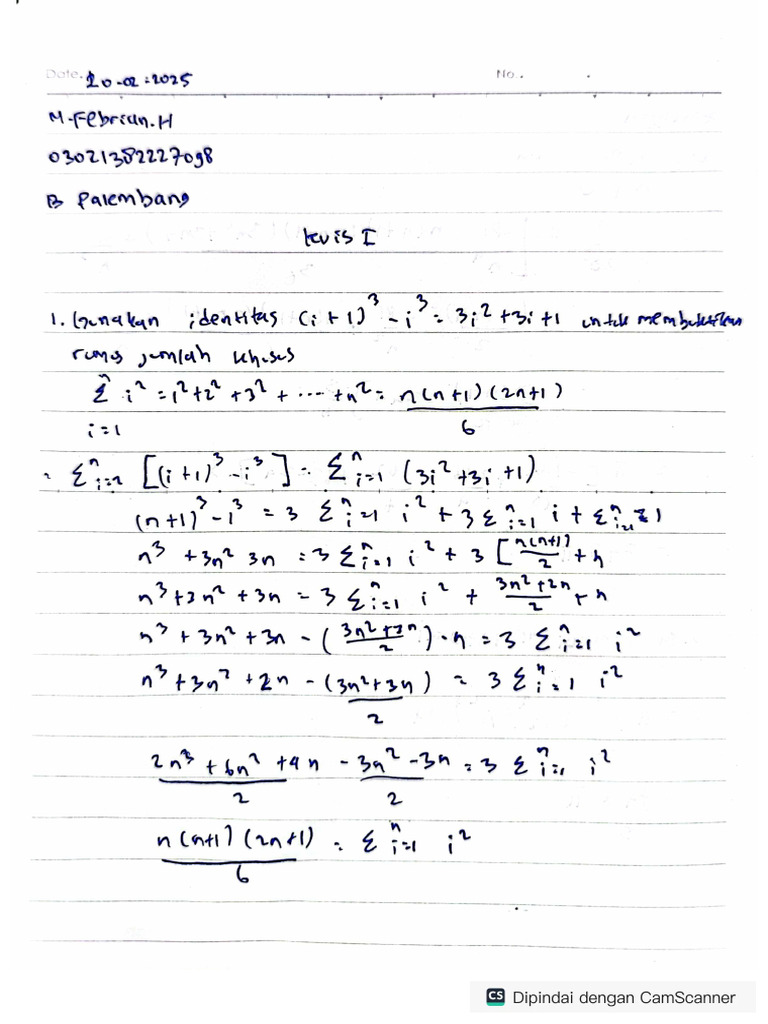 Date. 20-02-2025 No.
M.Febrian.H
03021382227098
B Palembang
kuis I
1. Gunakan identitas (i+1)³ - i³ = 3i² + 3i + 1 untuk membuktikan
rumus jumlah khusus
Σⁿ i² = 1² + 2² + 3² + .... + n² = n(n+1)(2n+1)
i=1 6
Σⁿᵢ₌₁ [(i+1)³ - i³] = Σⁿᵢ₌₁ (3i² + 3i + 1)
(n+1)³ - 1³ = 3 Σⁿᵢ₌₁ i² + 3 Σⁿᵢ₌₁ i + Σⁿᵢ₌₁ 1
n³ + 3n² 3n = 3 Σⁿᵢ₌₁ i² + 3 [n(n+1)/2 + n
n³ + 3n² + 3n = 3 Σⁿᵢ₌₁ i² + (3n² + 2n)/2 + n
n³ + 3n² + 3n - (3n² + 3n / 2) - n = 3 Σⁿᵢ₌₁ i²
n³ + 3n² + 2n - (3n² + 3n) = 3 Σⁿᵢ₌₁ i²
2
2n³ + 6n² + 4n - 3n² - 3n = 3 Σⁿᵢ₌₁ i²
2 2
n(n+1)(2n+1) = Σⁿᵢ₌₁ i²
6
CS Dipindai dengan CamScanner